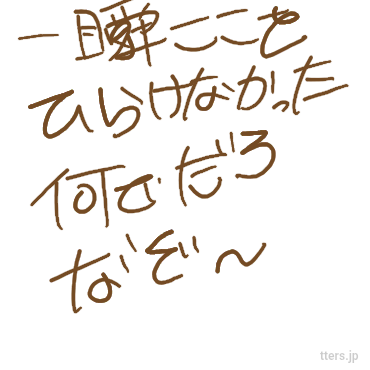 一瞬ここを
ひらけなかった
何でだろ
なぞ〜
tters.jp